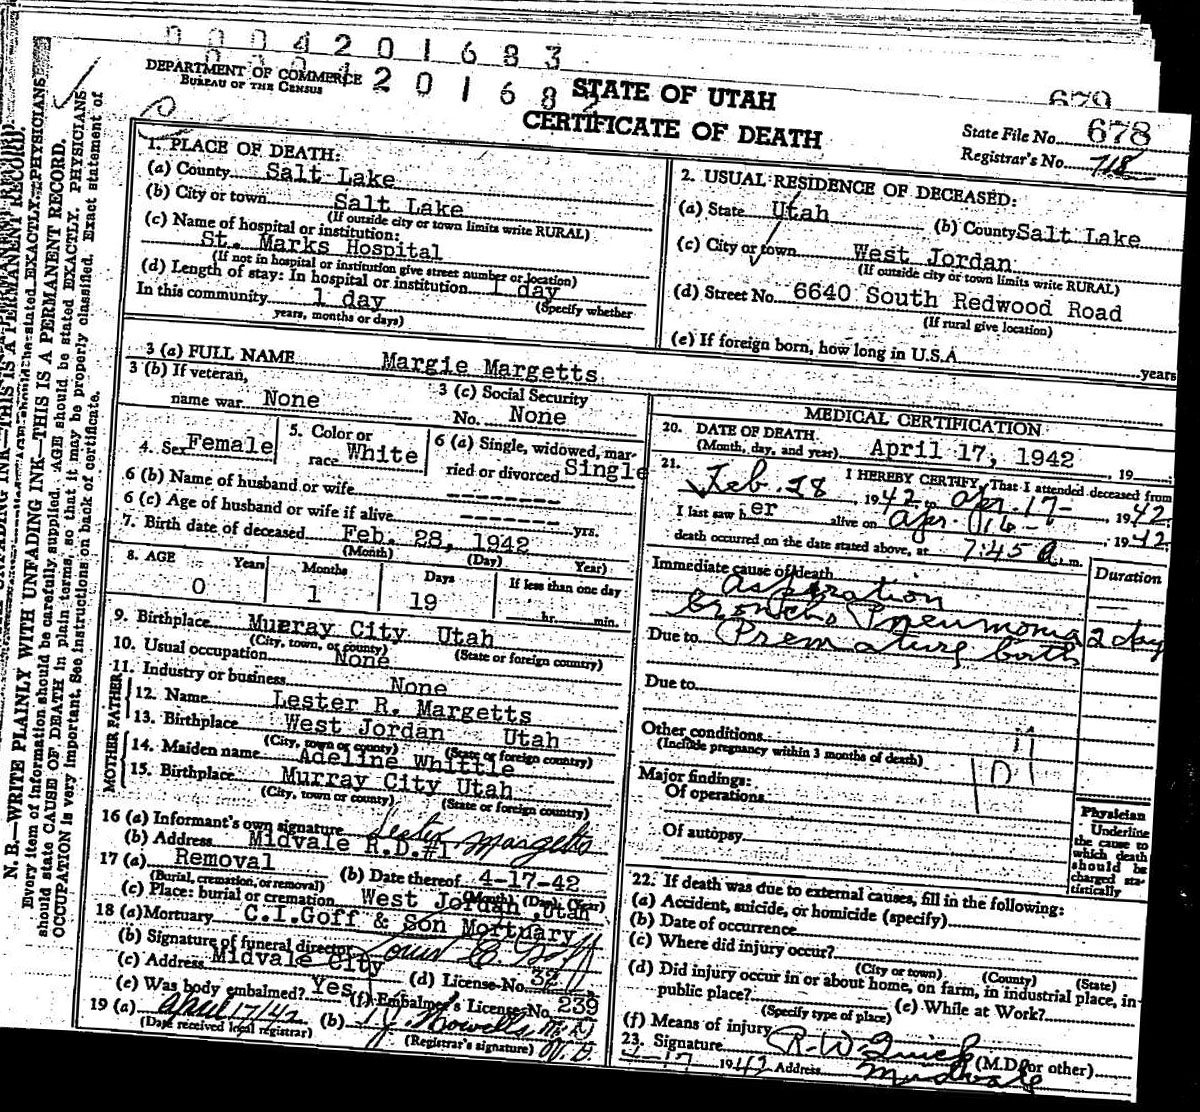 0004201683
000420168
679
DEPARTMENT OF COMMERCE
BUREAU OF THE CENSUS
STATE OF UTAH
CERTIFICATE OF DEATH
State File No. 678
Registrar's No. 718
N. B.—WRITE PLAINLY WITH UNFADING INK—THIS IS A PERMANENT RECORD.
Every item of information should be carefully supplied. AGE should be stated EXACTLY. PHYSICIANS
should state CAUSE OF DEATH in plain terms, so that it may be properly classified. Exact statement of
OCCUPATION is very important. See instructions on back of certificate.
1. PLACE OF DEATH:
(a) County Salt Lake
(b) City or town Salt Lake
(If outside city or town limits write RURAL)
(c) Name of hospital or institution:
St. Marks Hospital
(If not in hospital or institution give street number or location)
(d) Length of stay: In hospital or institution 1 day
(Specify whether
In this community 1 day
years, months or days)
2. USUAL RESIDENCE OF DECEASED:
(a) State Utah (b) County Salt Lake
(c) City or town West Jordan
(If outside city or town limits write RURAL)
(d) Street No. 6640 South Redwood Road
(If rural give location)
(e) If foreign born, how long in U.S.A. years
3 (a) FULL NAME Margie Margetts
3 (b) If veteran,
name war None
3 (c) Social Security
No. None
4. Sex Female
5. Color or
race White
6 (a) Single, widowed, mar-
ried or divorced Single
6 (b) Name of husband or wife
6 (c) Age of husband or wife if alive yrs.
7. Birth date of deceased Feb. 28, 1942
(Month) (Day) Year)
8. AGE Years Months Days If less than one day
0 1 19 hr. min.
9. Birthplace Murray City Utah
(City, town, or county) (State or foreign country)
10. Usual occupation None
11. Industry or business None
FATHER
12. Name Lester R. Margetts
13. Birthplace West Jordan Utah
(City, town or county) (State or foreign country)
MOTHER
14. Maiden name Adeline Whittle
15. Birthplace Murray City Utah
(City, town or county) (State or foreign country)
16 (a) Informant's own signature Lester Margetts
(b) Address Midvale R.D.#1
17 (a) Removal (b) Date thereof 4-17-42
(Burial, cremation, or removal) (Month) (Day) (Year)
(c) Place: burial or cremation West Jordan, Utah
18 (a) Mortuary C.I.Goff & Son Mortuary
(b) Signature of funeral director Louis C. Goff
(c) Address Midvale City (d) License No. 32
(e) Was body embalmed? Yes (f) Embalmer's License No. 239
19 (a) April 17/42 (b)
(Date received local registrar) (Registrar's signature)
MEDICAL CERTIFICATION
20. DATE OF DEATH
(Month, day, and year) April 17, 1942, 19
21. I HEREBY CERTIFY, That I attended deceased from
Feb. 28, 1942 to Apr. 17-, 1942
I last saw her alive on Apr. 16-, 1942
death occurred on the date stated above, at 7:45 A.m.
Duration
Immediate cause of death
Aspiration
Broncho Pneumonia 2 day
Due to Premature birth
Due to
Other conditions
(Include pregnancy within 3 months of death)
Major findings:
Of operations
Of autopsy
Physician
Underline
the cause to
which death
should be
charged sta-
tistically
22. If death was due to external causes, fill in the following:
(a) Accident, suicide, or homicide (specify)
(b) Date of occurrence
(c) Where did injury occur?
(City or town) (County) (State)
(d) Did injury occur in or about home, on farm, in industrial place, in
public place?
(Specify type of place) (e) While at Work?
(f) Means of injury
23. Signature R.W. Quick (M.D. or other)
4-17 1942 Address Midvale